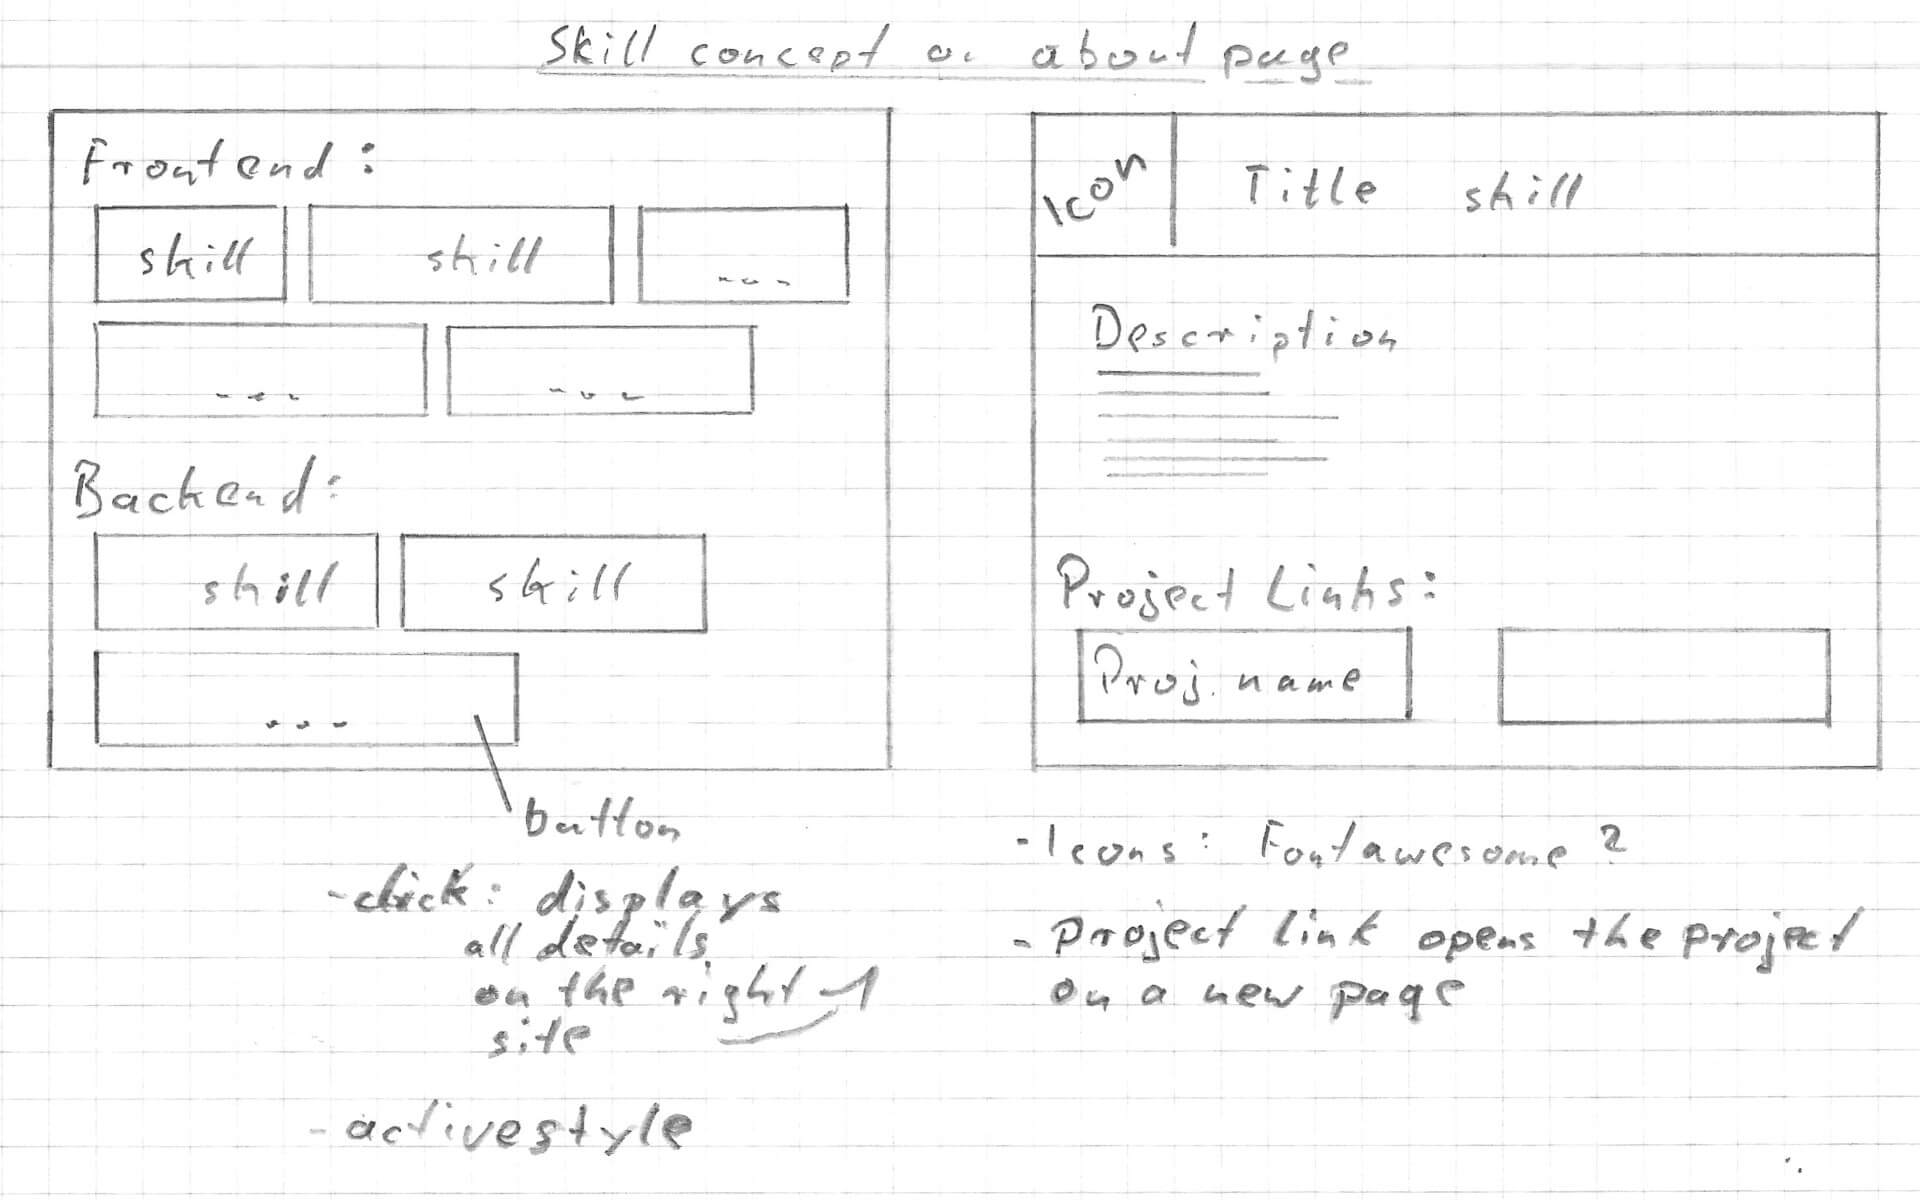 Skill concept on about page
Frontend:
skill skill ...
... ...
Backend:
skill skill
...
button
-click: displays
all details
on the right
site
- activestyle
Icon Title skill
Description
Project Links:
Proj. name
- Icons: Fontawesome?
- Project link opens the project
on a new page